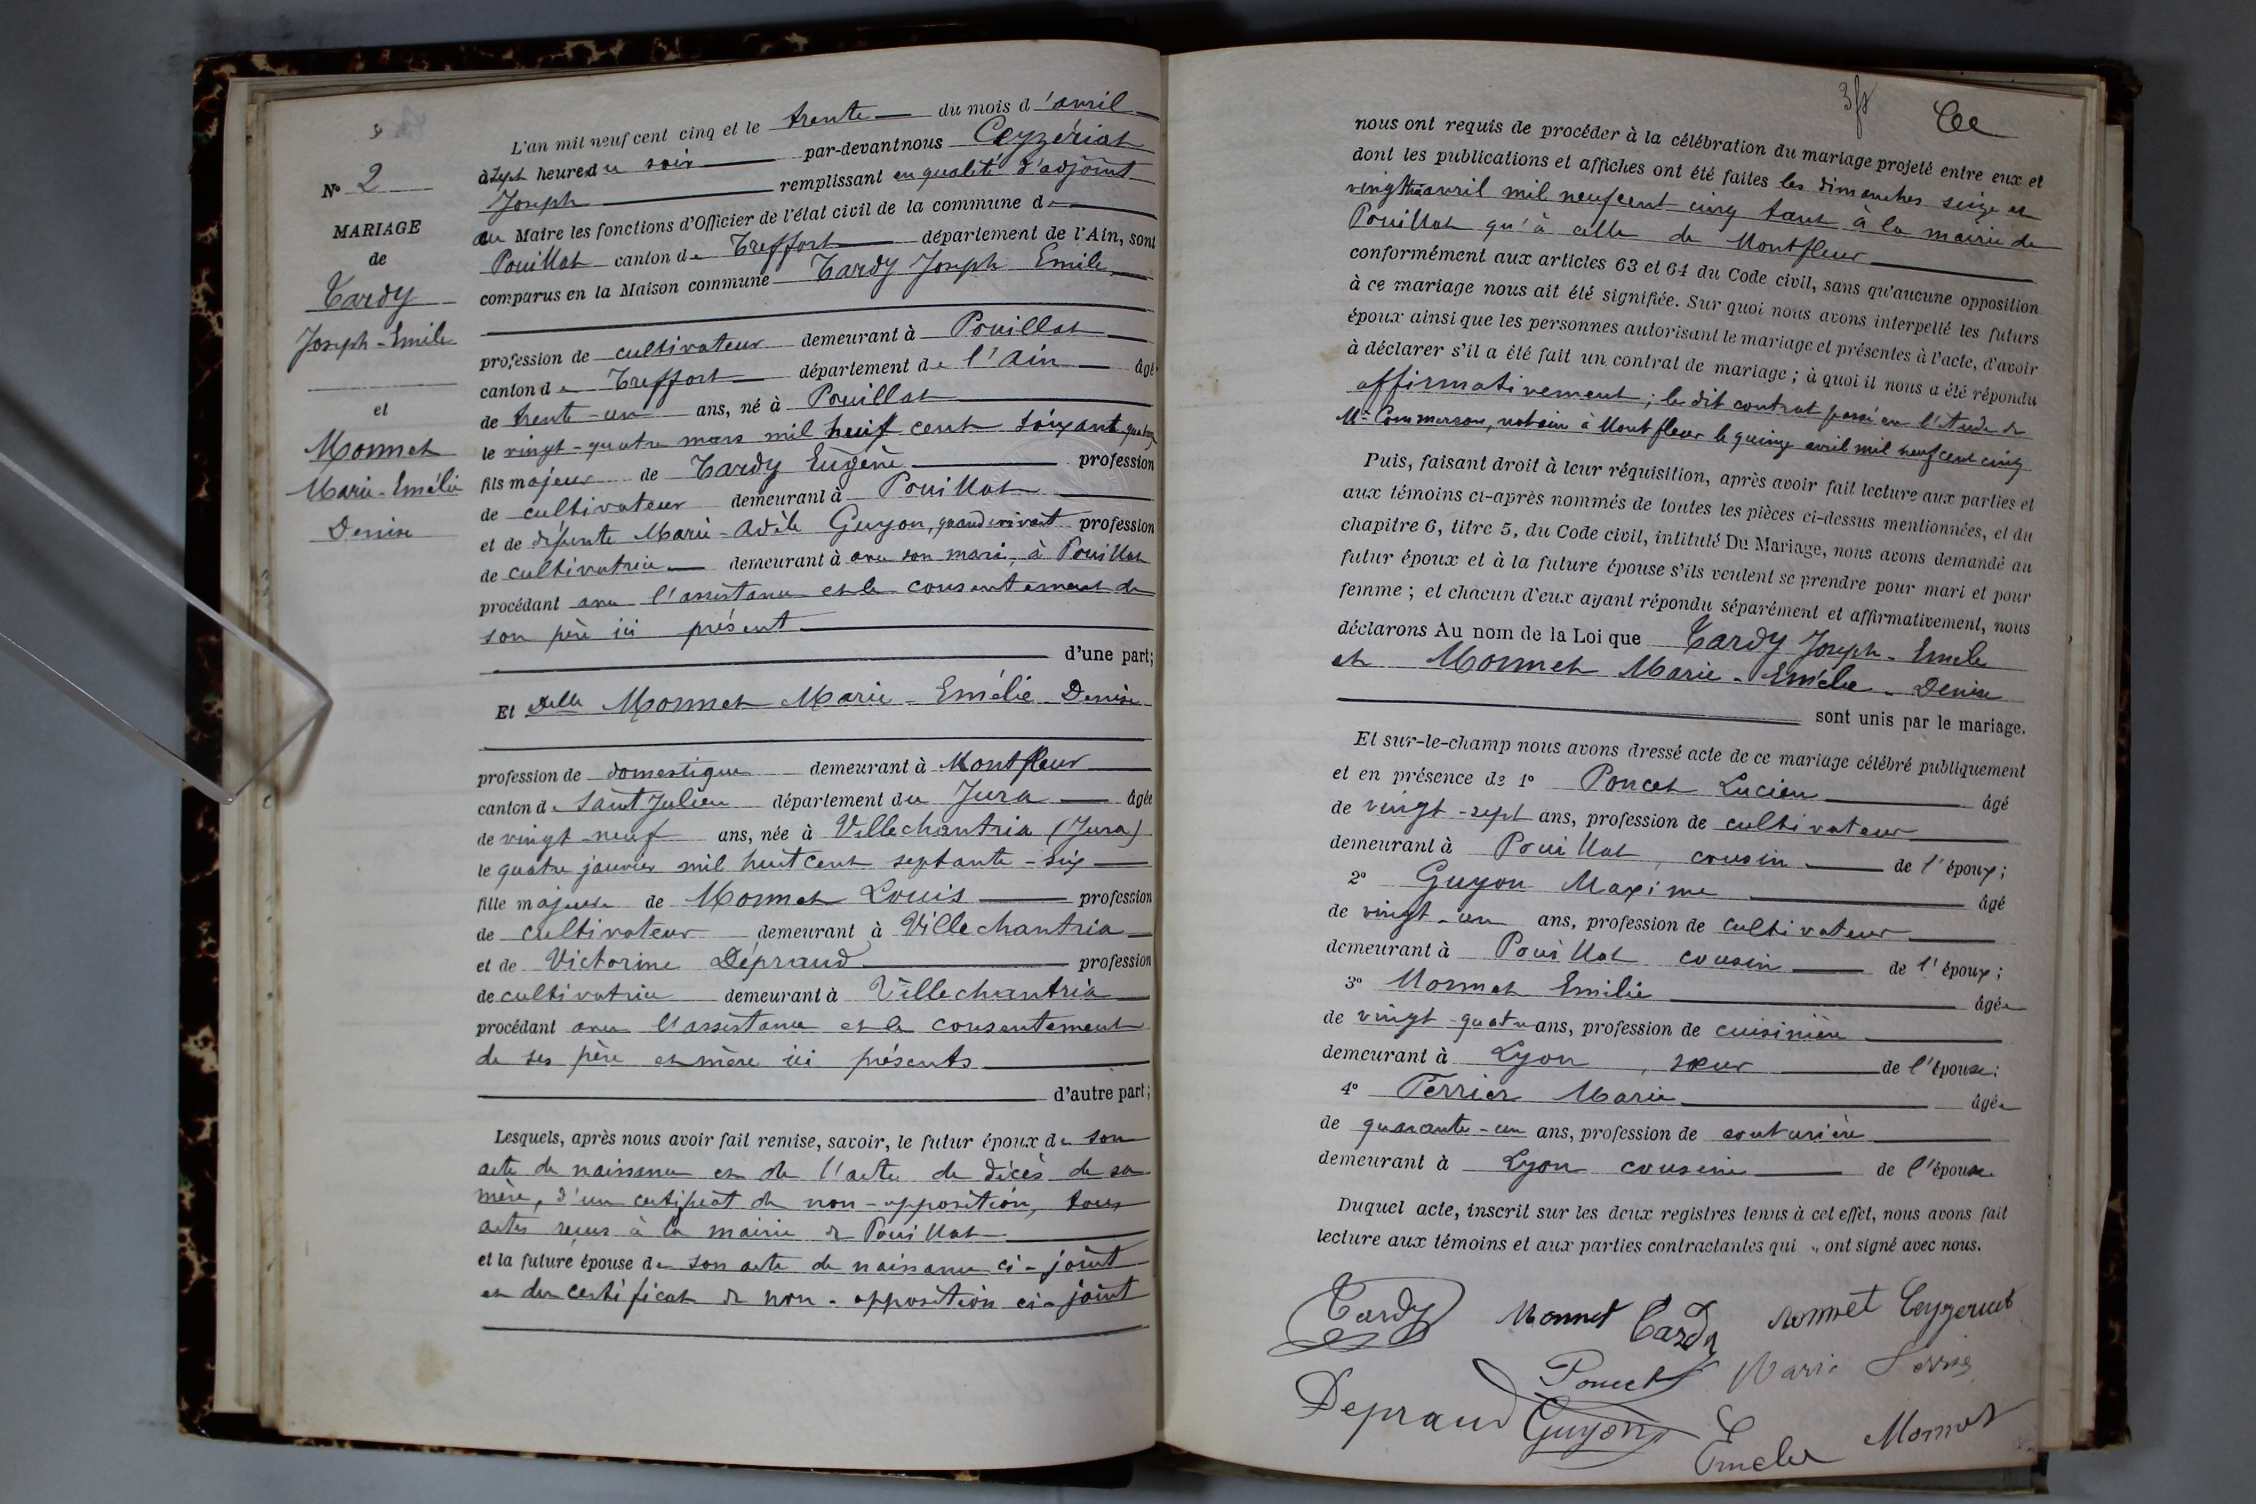 N° 2
MARIAGE
de
Tardy
Joseph-Emile
et
Monnet
Marie-Emélie
Denise
L'an mil neuf cent cinq et le trente du mois d'avril
à sept heures du soir par-devant nous Ceyzériat
Joseph remplissant en qualité d'adjoint
au Maire les fonctions d'Officier de l'état civil de la commune de
Pouillat canton de Treffort département de l'Ain, sont
comparus en la Maison commune Tardy Joseph Emile
profession de cultivateur demeurant à Pouillat
canton de Treffort département de l'Ain âgé
de trente-un ans, né à Pouillat
le vingt-quatre mars mil huit cent soixante quatorze
fils majeur de Tardy Eugène profession
de cultivateur demeurant à Pouillat
et de défunte Marie-Adèle Guyon, quand vivait profession
de cultivatrice demeurant à avec son mari, à Pouillat
procédant avec l'assistance et le consentement de
son père ici présent
d'une part;
Et Delle Monnet Marie-Emélie-Denise
profession de domestique demeurant à Montfleur
canton de Saint Julien département du Jura âgée
de vingt-neuf ans, née à Villechantria (Jura)
le quatre janvier mil huit cent septante-six
fille majeure de Monnet Louis profession
de cultivateur demeurant à Villechantria
et de Victorine Dépraud profession
de cultivatrice demeurant à Villechantria
procédant avec l'assistance et le consentement
de ses père et mère ici présents
d'autre part;
Lesquels, après nous avoir fait remise, savoir, le futur époux de son
acte de naissance et de l'acte de décès de sa
mère, d'un certificat de non-opposition, tous
actes reçus à la mairie de Pouillat
et la future épouse de son acte de naissance ci-joint
et du certificat de non-opposition ci-joint
nous ont requis de procéder à la célébration du mariage projeté entre eux et
dont les publications et affiches ont été faites les dimanches seize et
vingt trois avril mil neuf cent cinq tant à la mairie de
Pouillat qu'à celle de Montfleur
conformément aux articles 63 et 64 du Code civil, sans qu'aucune opposition
à ce mariage nous ait été signifiée. Sur quoi nous avons interpellé les futurs
époux ainsi que les personnes autorisant le mariage et présentes à l'acte, d'avoir
à déclarer s'il a été fait un contrat de mariage; à quoi il nous a été répondu
affirmativement; le dit contrat passé en l'étude de
Me Commerson, notaire à Montfleur le quinze avril mil neuf cent cinq
Puis, faisant droit à leur réquisition, après avoir fait lecture aux parties et
aux témoins ci-après nommés de toutes les pièces ci-dessus mentionnées, et du
chapitre 6, titre 5, du Code civil, intitulé Du Mariage, nous avons demandé au
futur époux et à la future épouse s'ils veulent se prendre pour mari et pour
femme; et chacun d'eux ayant répondu séparément et affirmativement, nous
déclarons Au nom de la Loi que Tardy Joseph-Emile
et Monnet Marie-Emélie-Denise
sont unis par le mariage.
Et sur-le-champ nous avons dressé acte de ce mariage célébré publiquement
et en présence de 1° Poncet Lucien âgé
de vingt-sept ans, profession de cultivateur
demeurant à Pouillat, cousin de l'époux;
2° Guyon Maxime âgé
de vingt-un ans, profession de cultivateur
demeurant à Pouillat cousin de l'époux;
3° Monnet Emilie âgée
de vingt-quatre ans, profession de cuisinière
demeurant à Lyon, sœur de l'épouse;
4° Perrier Marie âgée
de quarante-un ans, profession de couturière
demeurant à Lyon cousine de l'épouse
Duquel acte, inscrit sur les deux registres tenus à cet effet, nous avons fait
lecture aux témoins et aux parties contractantes qui ont signé avec nous.
Tardy Monnet Tardy Monnet Ceyzeriat
Poncet Marie
Depraud Guyon Monnet